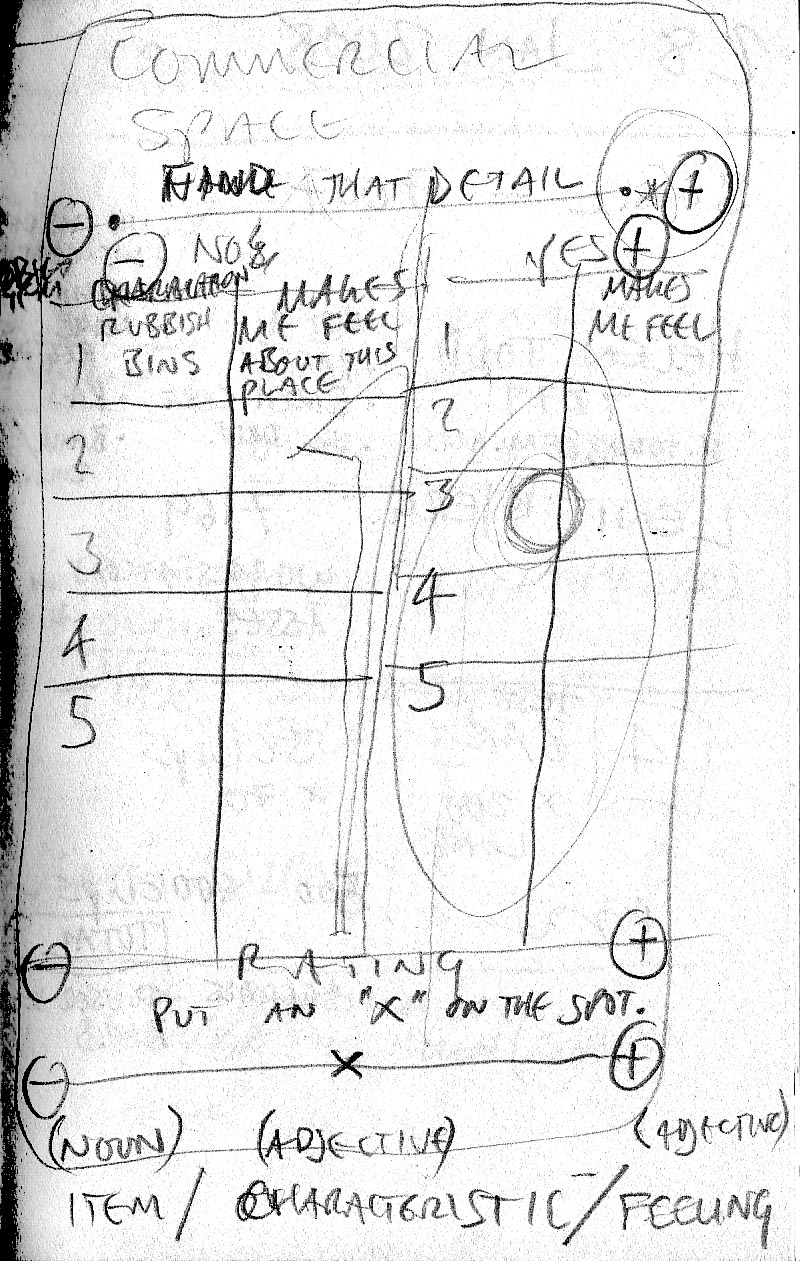 COMMERCIAL
SPACE
THAT DETAIL
- +
- NO YES +
MAKES
ME FEEL
ABOUT THIS
PLACE
RUBBISH
BINS
MAKES
ME FEEL
1 1
2 2
3 3
4 4
5 5
- RATING +
PUT AN "X" ON THE SPOT.
- X +
(NOUN) (ADJECTIVE) (ADJECTIVE)
ITEM / CHARACTERISTIC / FEELING